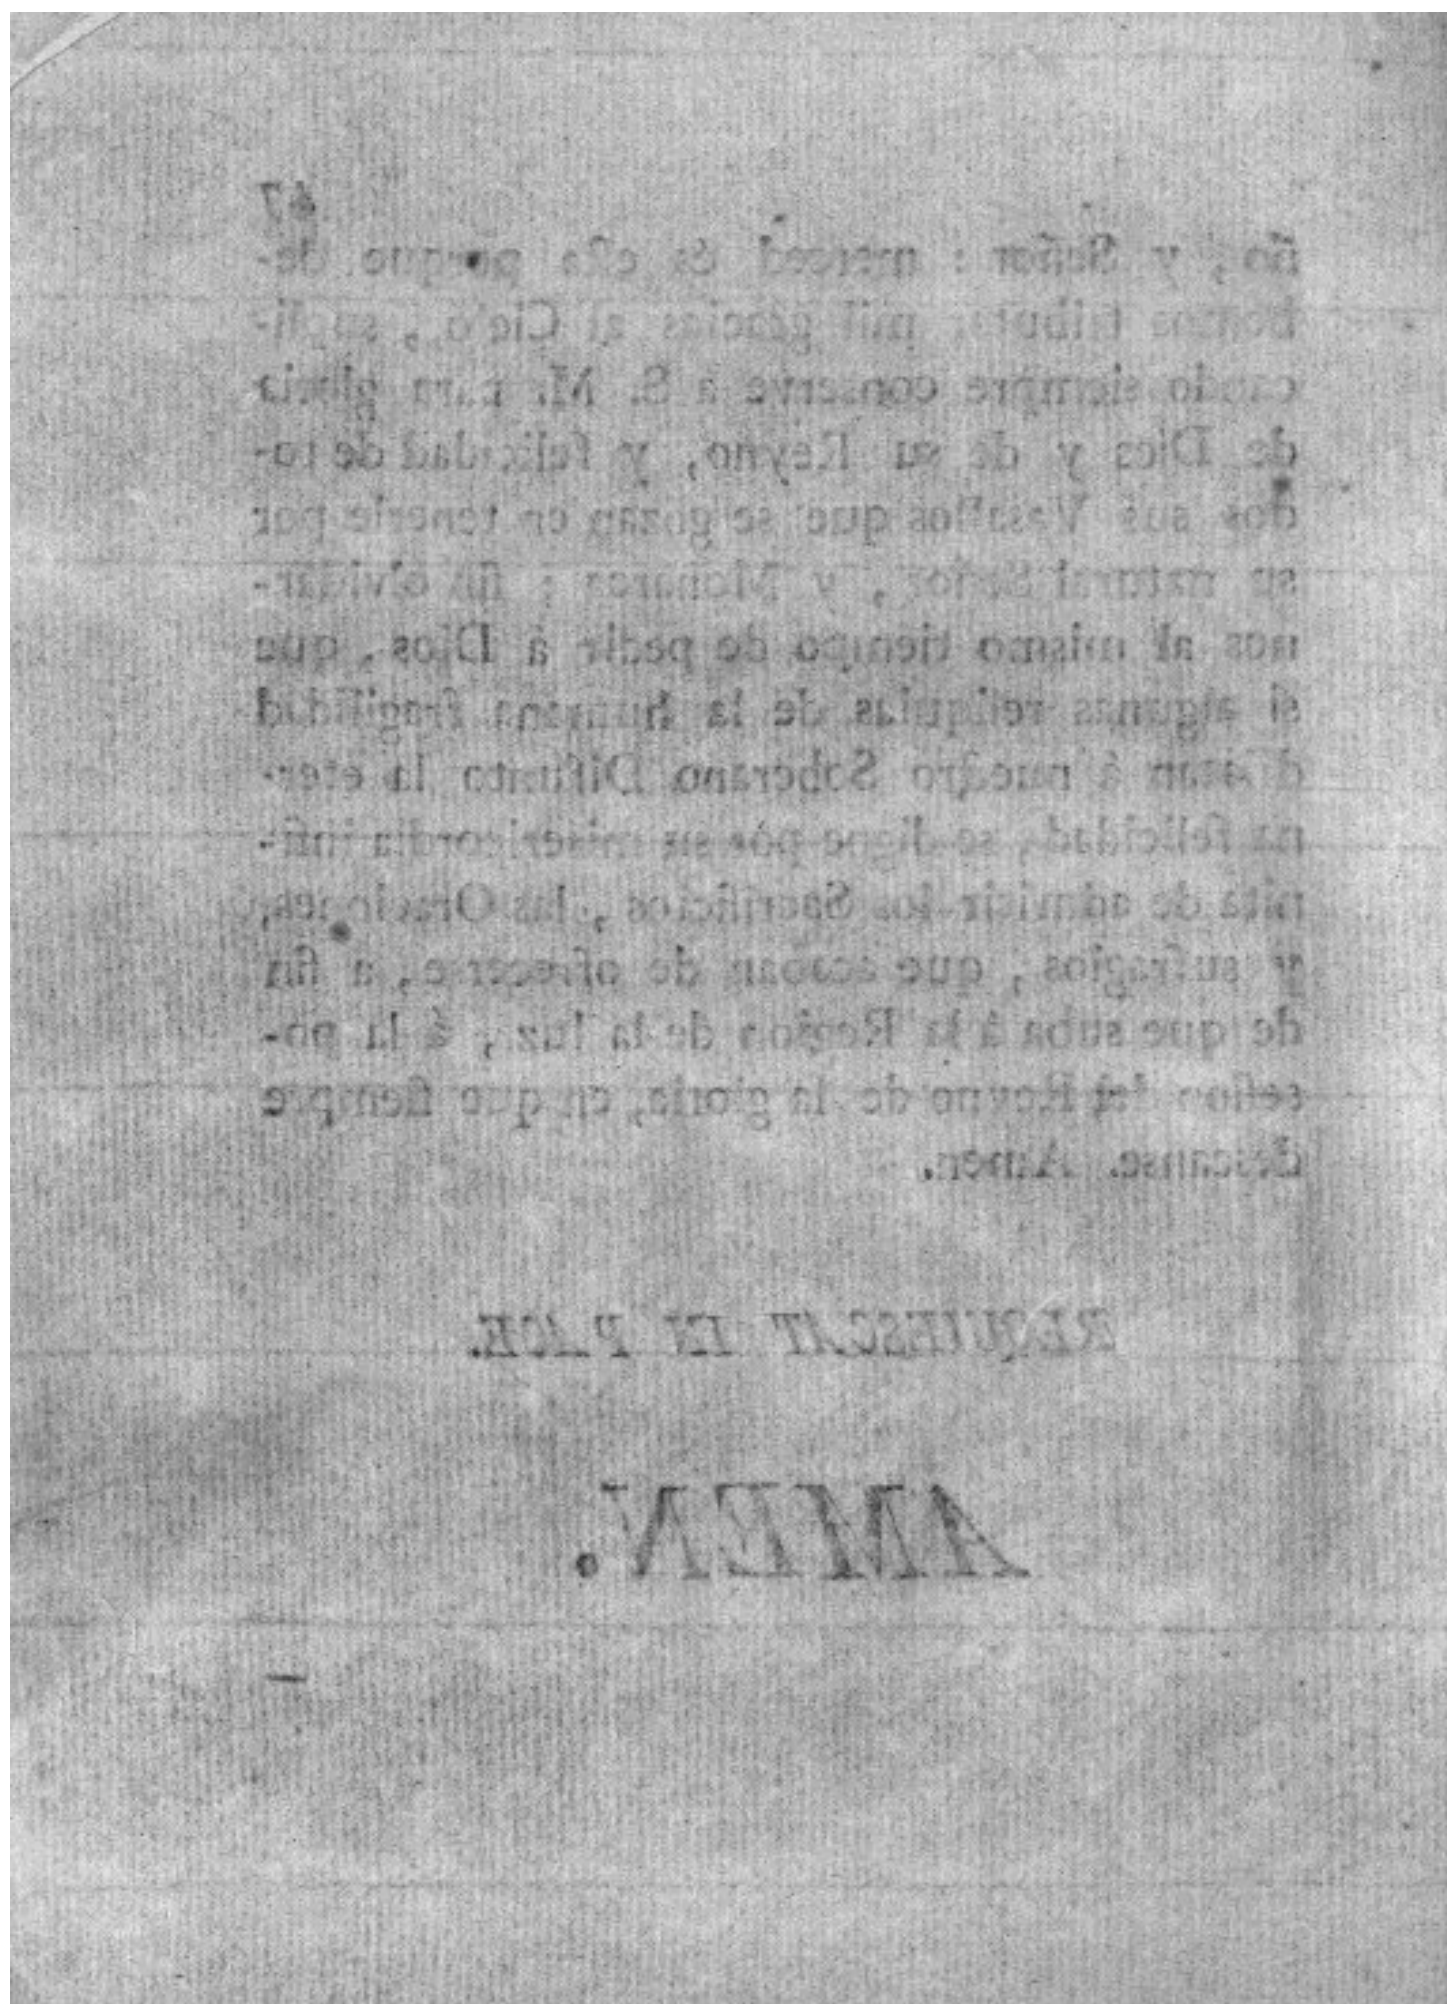 67
ño, y Señor : merced es esta porque de-
bemos tributar mil gracias al Cielo, supli-
cando siempre conserve à S. M. para gloria
de Dios y de su Reyno, y felicidad de to-
dos sus Vasallos que se gozan en tenerle por
su natural Señor, y Monarca : sin olvidar-
nos al mismo tiempo de pedir à Dios, que
si algunas reliquias de la humana fragilidad
à nuestro Soberano Difunto la eter-
na felicidad, se digne por su misericordia infi-
nita de admitir los Sacrificios, las Oraciones,
y sufragios, que acaban de ofrecerse, à fin
de que suba à la Region de la luz, á la po-
sesion del Reyno de la gloria, en que siempre
descanse. Amen.
REQUIESCAT IN PACE.
AMEN.